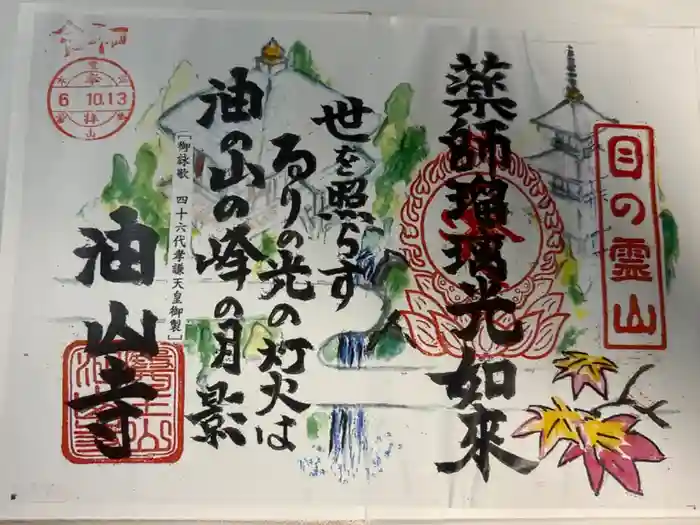 目の霊山
薬師瑠璃光如來
世を照らす
るりの光の灯火は
油の山の峰の月影
［御詠歌　四十六代孝謙天皇御製］
油山寺
奉拝
6 10.13